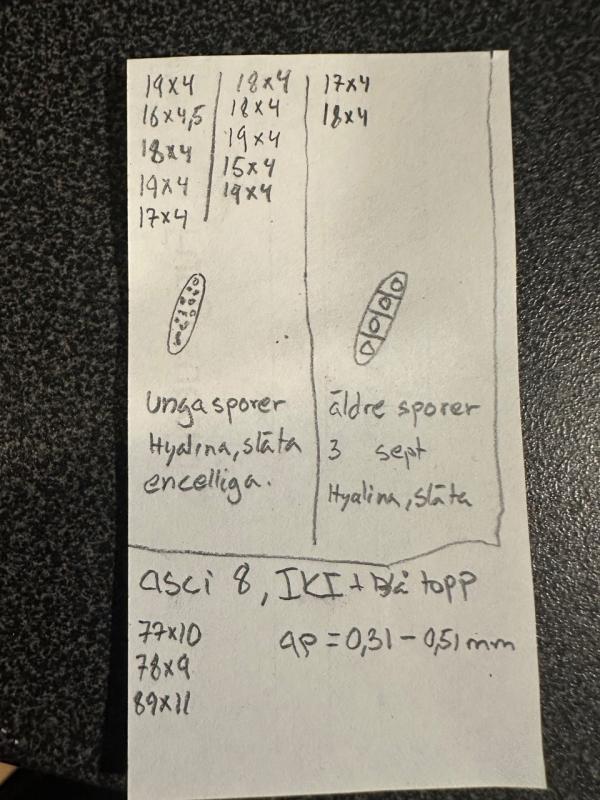 19x4
16x4,5
18x4
19x4
17x4
18x4
18x4
19x4
15x4
19x4
17x4
18x4
Unga sporer
Hyalina, släta
encelliga.
äldre sporer
3 sept
Hyalina, släta
asci 8, IKI + Blå topp
77x10
78x9
89x11
ap = 0,31 - 0,51 mm